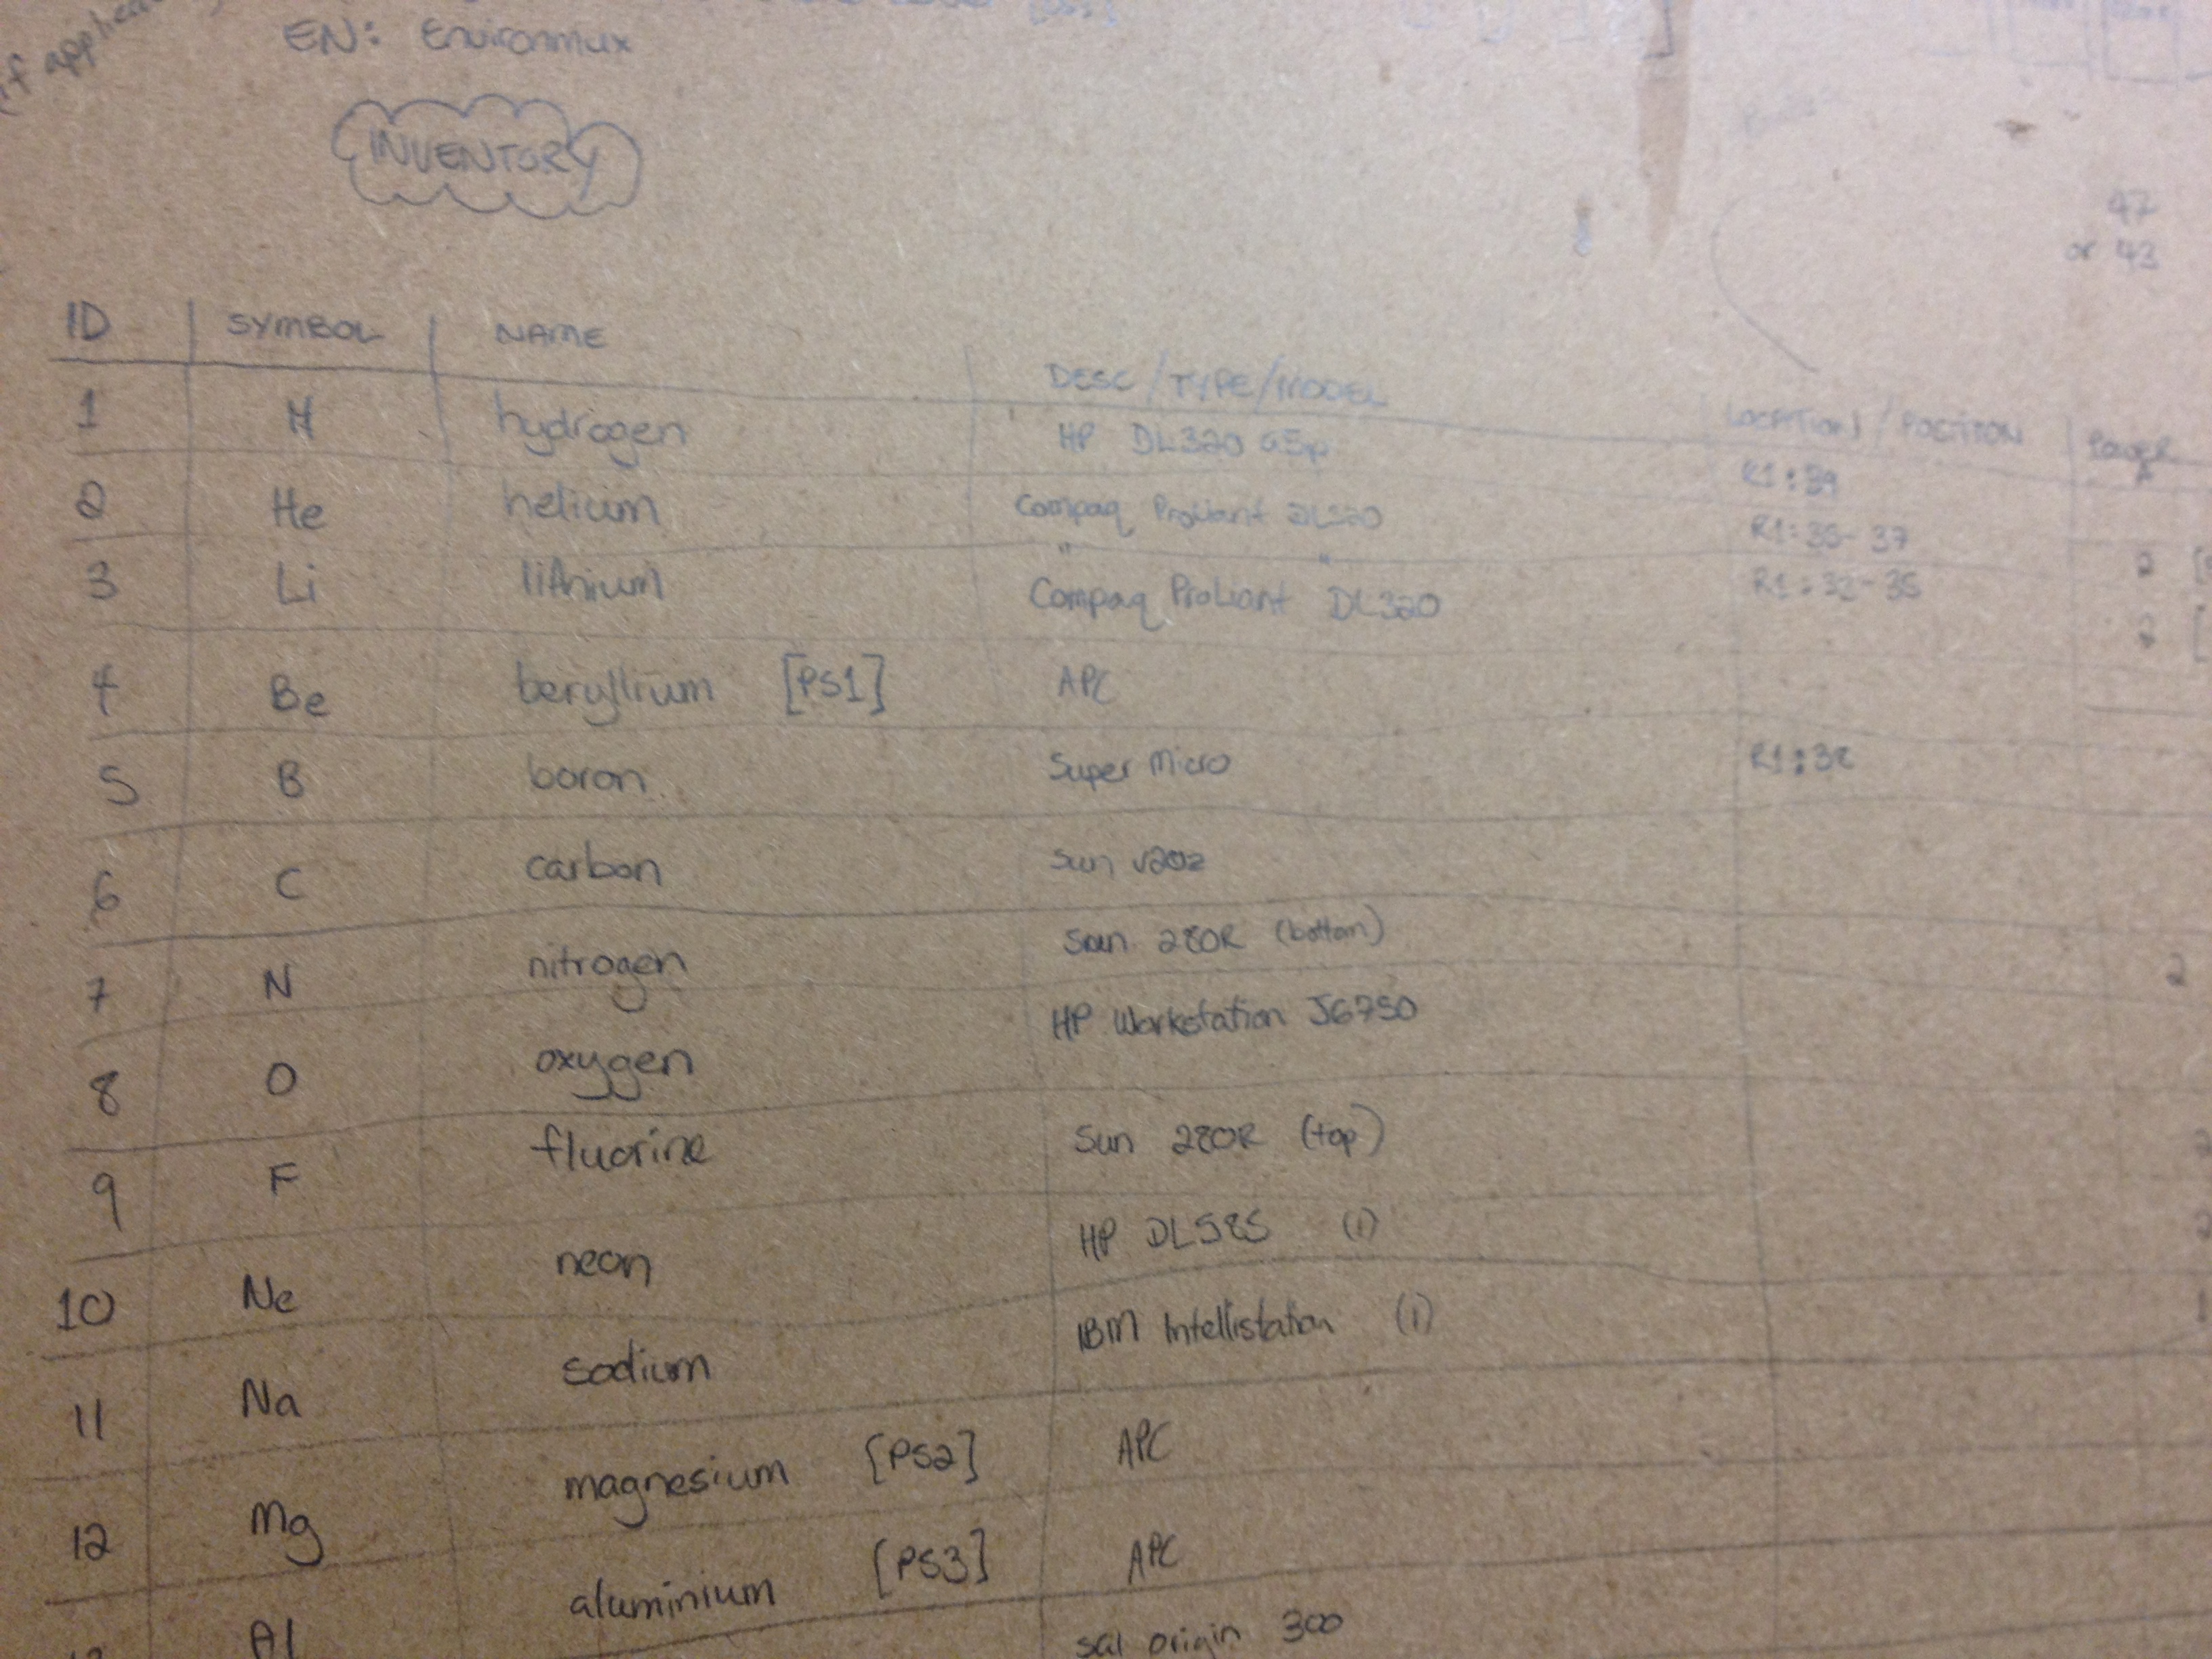 if
EN: Environmux
INVENTORY
47
or 43
ID SYMBOL NAME DESC/TYPE/MODEL LOCATION/POSITION POWER
1 H hydrogen HP DL320 G5p R1:39
2 He helium Compaq Proliant DL320 R1:35-37
" "
3 Li lithium Compaq Proliant DL320 R1:33-35 2
4 Be beryllium [PS1] APC
5 B boron Super Micro
6 C carbon Sun v20z
7 N nitrogen Sun 280R (bottom) 2
8 O oxygen HP Workstation J6750
9 F fluorine Sun 280R (top)
10 Ne neon HP DL585 (1)
11 Na sodium IBM Intellistation (1)
12 Mg magnesium [PS2] APC
Al aluminium [PS3] APC
origin 300